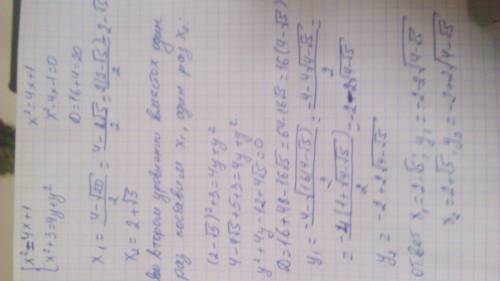 {x²=4x+1
x²+3=4y+y²
x²=4x+1
x²-4x-1=0
D=16+4=20
x₁ = (4-√20)/2 = (4-2√5)/2 = 2(2-√5)/2 = 2-√5
x₂ = 2+√5
во втором уравнении вместо x один
раз поставим x₁, один раз x₂.
(2-√5)²+3=4y+y²
4-4√5+5+3=4y+y²
y²+4y-12+4√5=0
D=16+48-16√5=64-16√5=16(4-√5)
y₁ = (-4-√(16(4-√5)))/2 = (-4-4√(4-√5))/2 =
= -4(1+√(4-√5))/2 = -2-2√(4-√5)
y₂ = -2+2√(4-√5)
ответ x₁=2-√5, y₁=-2-2√(4-√5)
x₂=2+√5, y₂=-2+2√(4-√5)